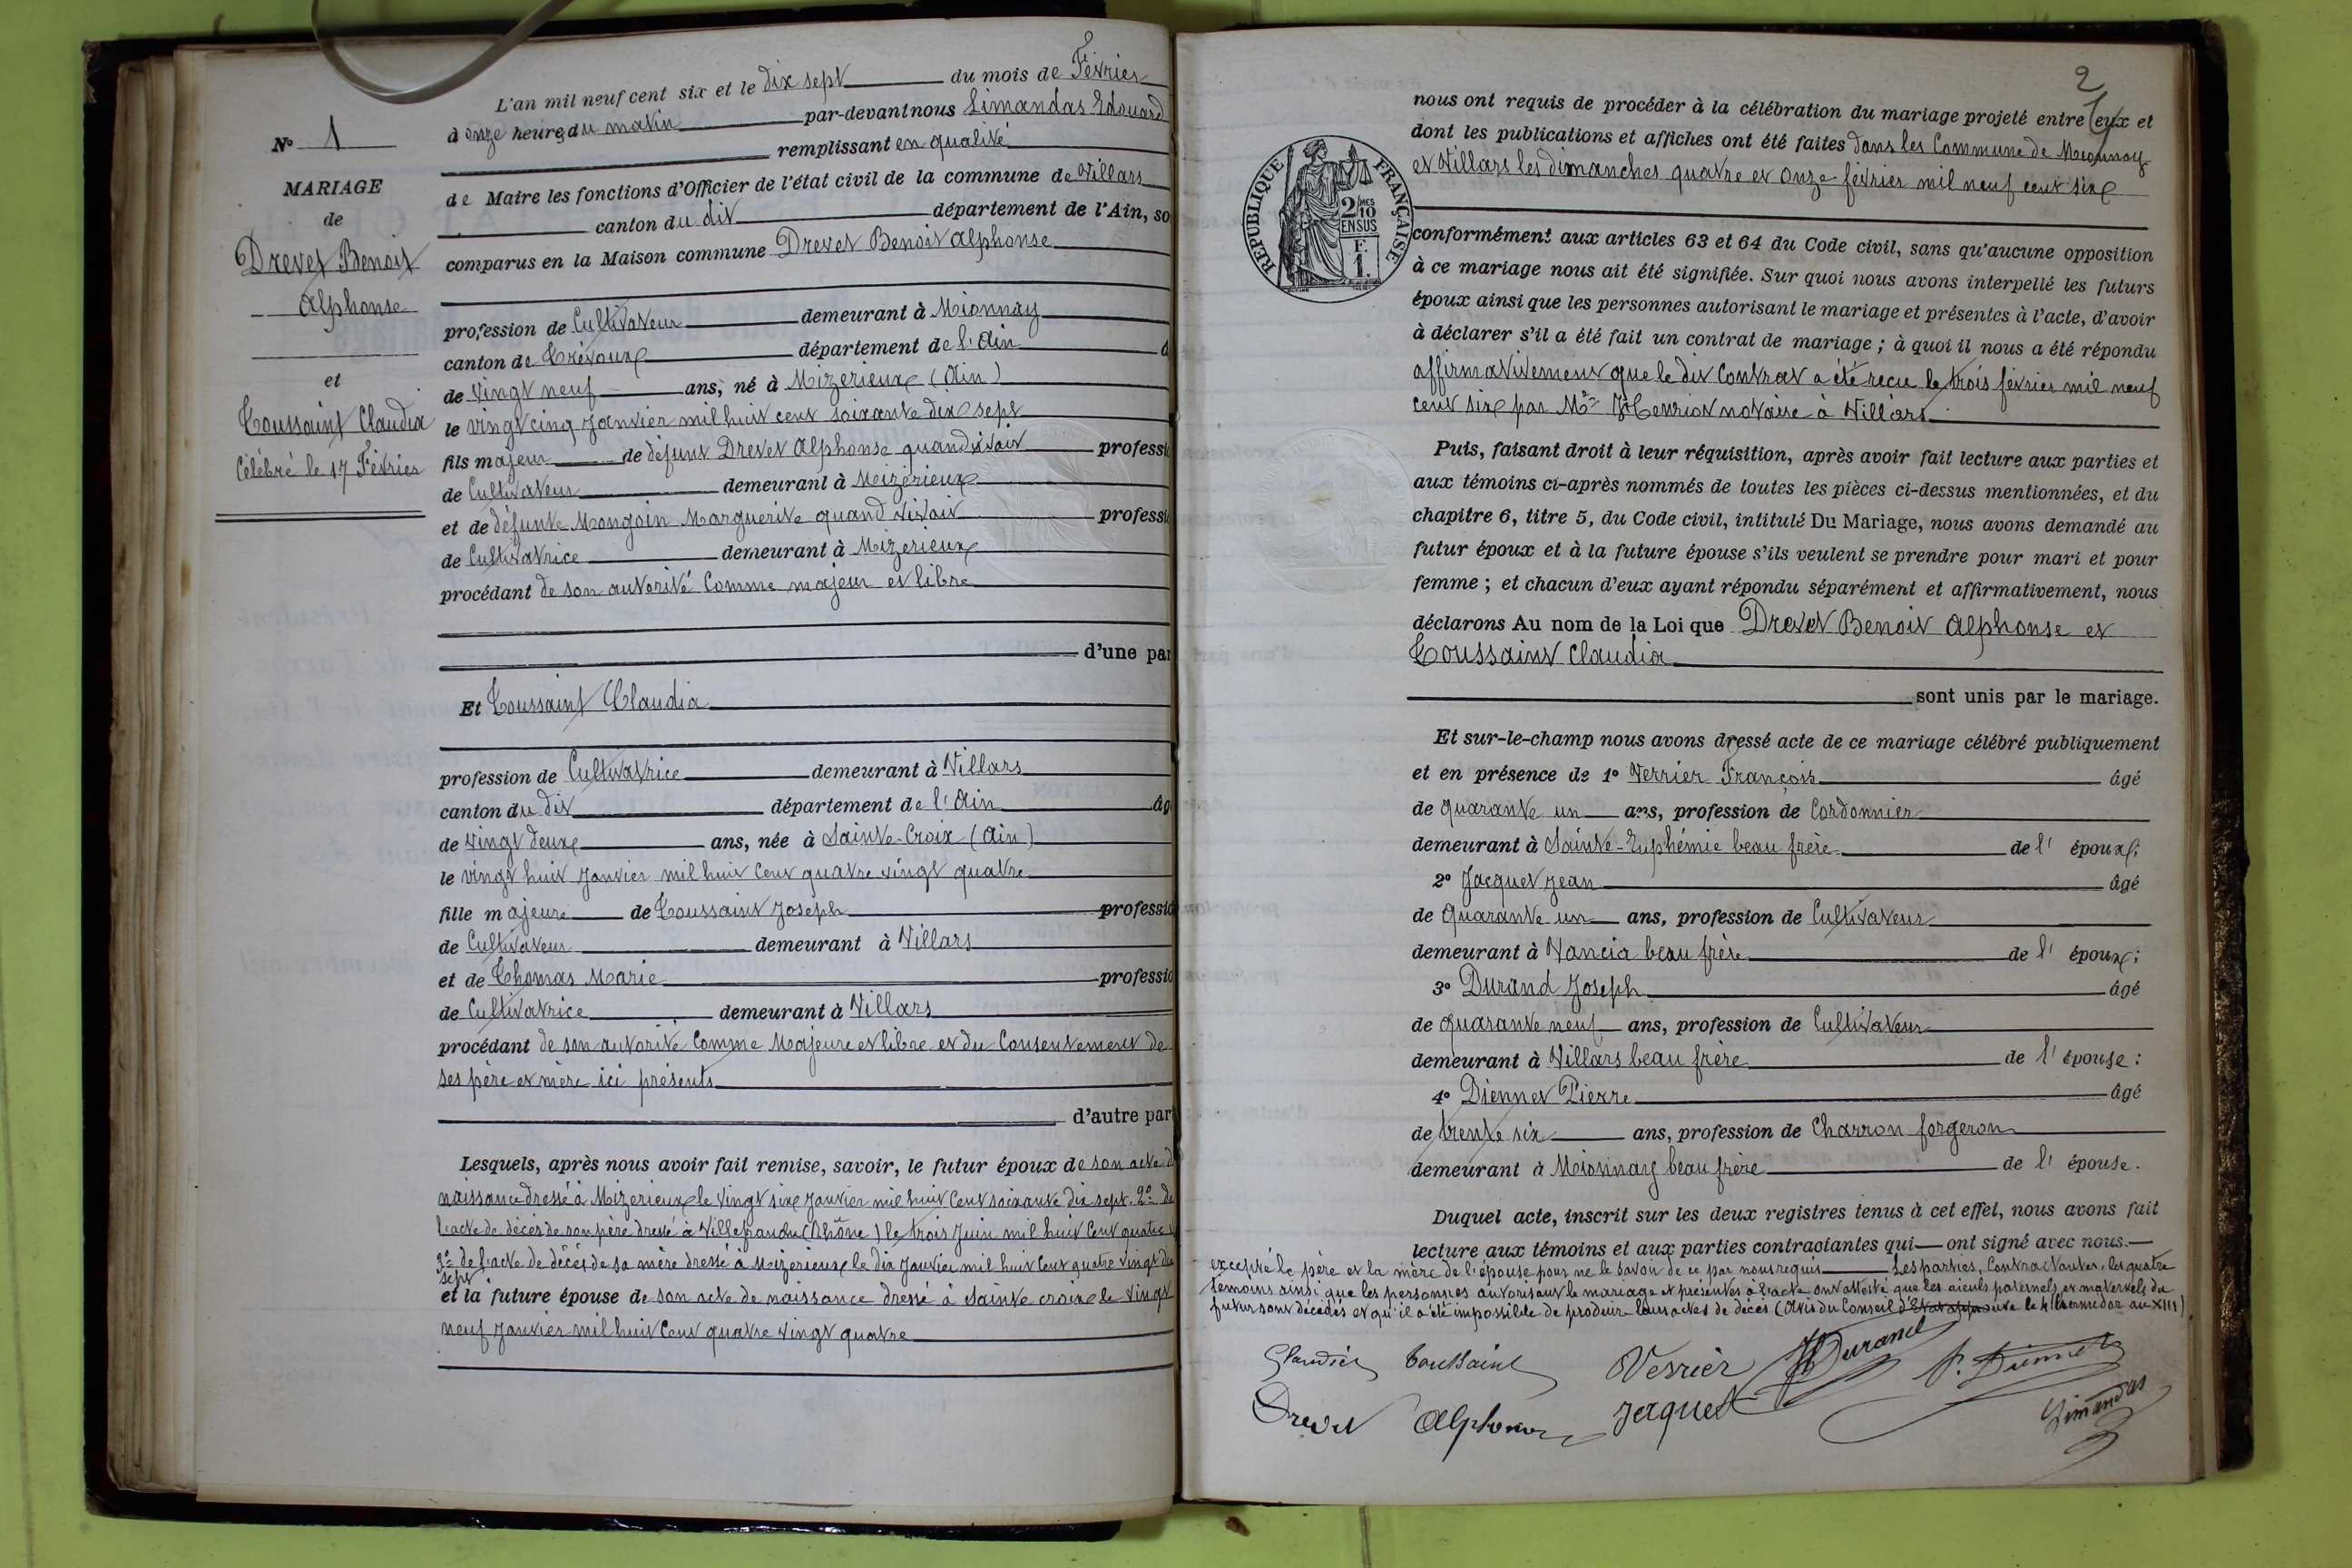 N° 1
MARIAGE
de
Drevet Benoit
Alphonse
et
Toussaint Claudia
Célébré le 17 Février
L'an mil neuf cent six et le dix sept du mois de Février
à onze heures du matin par-devant nous Limandas Edouard
remplissant en qualité
de Maire les fonctions d'Officier de l'état civil de la commune de Villars
canton du dit département de l'Ain, so
comparus en la Maison commune Drevet Benoit Alphonse
profession de Cultivateur demeurant à Mionnay
canton de Trévoux département de l'Ain
de vingt neuf ans, né à Mizerieux (Ain)
le vingt cinq Janvier mil huit cent soixante dix sept
fils majeur de défunt Drevet Alphonse quand vivait professi
de Cultivateur demeurant à Mizérieux
et de défunte Mongoin Marguerite quand vivait professi
de Cultivatrice demeurant à Mizerieux
procédant de son autorité Comme majeur et libre
d'une par
Et Toussaint Claudia
profession de Cultivatrice demeurant à Villars
canton du dit département de l'Ain âg
de vingt deux ans, née à Sainte-Croix (Ain)
le vingt huit Janvier mil huit cent quatre vingt quatre
fille majeure de Toussaint Joseph professio
de Cultivateur demeurant à Villars
et de Thomas Marie professio
de Cultivatrice demeurant à Villars
procédant de son autorité Comme Majeure et libre et du Consentement de
ses père et mère ici présents
d'autre part
Lesquels, après nous avoir fait remise, savoir, le futur époux de son acte d
naissance dressé à Mizerieux le vingt six Janvier mil huit cent soixante dix sept. 2° de
l'acte de décès de son père dressé à Villefranche (Rhône) le trois Juin mil huit cent quatre
3° de l'acte de décès de sa mère dressé à Mizérieux le dix Janvier mil huit cent quatre vingt dix
sept
et la future épouse de son acte de naissance dressé à Sainte croix le vingt
neuf Janvier mil huit cent quatre vingt quatre
2
RÉPUBLIQUE FRANÇAISE
2/10 MES
EN SUS
F.
1.
nous ont requis de procéder à la célébration du mariage projeté entre eux et
dont les publications et affiches ont été faites dans les Commune de Mionnay
et Villars les dimanches quatre et onze février mil neuf cent six
conformément aux articles 63 et 64 du Code civil, sans qu'aucune opposition
à ce mariage nous ait été signifiée. Sur quoi nous avons interpellé les futurs
époux ainsi que les personnes autorisant le mariage et présentes à l'acte, d'avoir
à déclarer s'il a été fait un contrat de mariage ; à quoi il nous a été répondu
affirmativement que le dit Contrat a été recu le trois février mil neuf
cent six par Me Henriot notaire à Villars
Puis, faisant droit à leur réquisition, après avoir fait lecture aux parties et
aux témoins ci-après nommés de toutes les pièces ci-dessus mentionnées, et du
chapitre 6, titre 5, du Code civil, intitulé Du Mariage, nous avons demandé au
futur époux et à la future épouse s'ils veulent se prendre pour mari et pour
femme ; et chacun d'eux ayant répondu séparément et affirmativement, nous
déclarons Au nom de la Loi que Drevet Benoit Alphonse et
Toussaint Claudia
sont unis par le mariage.
Et sur-le-champ nous avons dressé acte de ce mariage célébré publiquement
et en présence de 1° Verrier François âgé
de quarante un ans, profession de Cordonnier
demeurant à Sainte-Euphémie beau frère de l' époux;
2° Jacquet Jean âgé
de quarante un ans, profession de Cultivateur
demeurant à Vancia beau frère de l' époux;
3° Durand Joseph âgé
de quarante neuf ans, profession de Cultivateur
demeurant à Villars beau frère de l' épouse :
4° Diennet Pierre âgé
de trente six ans, profession de Charron forgeron
demeurant à Mionnay beau frère de l' épouse.
Duquel acte, inscrit sur les deux registres tenus à cet effet, nous avons fait
lecture aux témoins et aux parties contractantes qui ont signé avec nous.
excepté le père et la mère de l'épouse pour ne le savoir de ce par nous requis Les parties, Contractantes, les quatre
témoins ainsi que les personnes autorisant le mariage et présentes à l'acte ont attesté que les aïeuls paternels et maternels du
futur sont décédés et qu'il a été impossible de produire leurs actes de décès (Avis du Conseil d'Etat approuvé le 4 thermidor an XIII)
Claudia Toussaint Verrier J Durand P. Diennet
Drevet Alphonse Jacquet Limandas